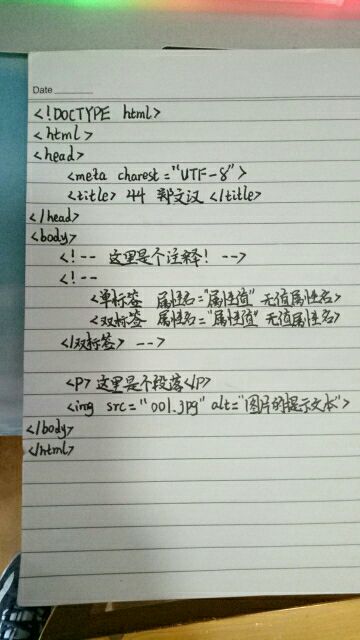 Date
<!DOCTYPE html>
<html>
<head>
<meta charest="UTF-8">
<title> 44 郭文汉 </title>
</head>
<body>
<!-- 这里是个注释! -->
<!--
<单标签 属性名="属性值" 无值属性名>
<双标签 属性名="属性值" 无值属性名>
</双标签> -->
<P> 这里是个段落</P>
<img src="001.jpg" alt="图片的提示文本">
</body>
</html>